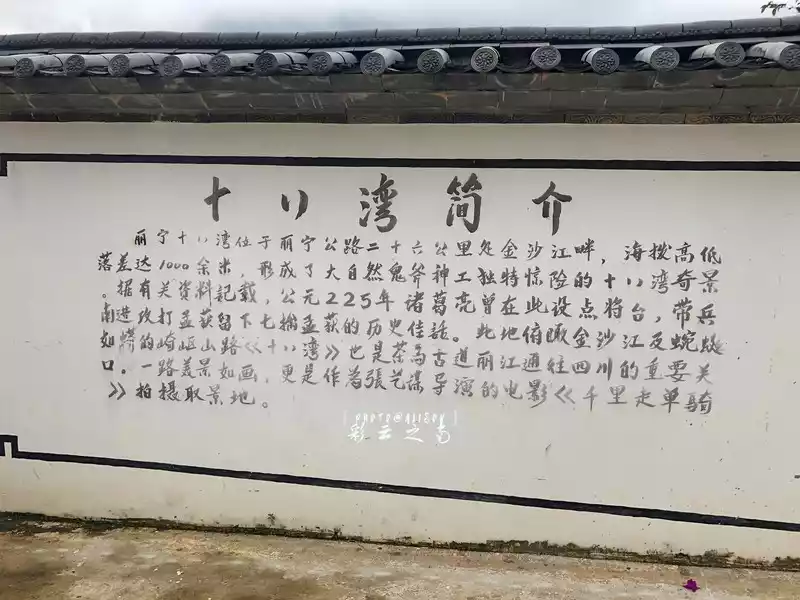 十八湾简介
丽宁十八湾位于丽宁公路二十六公里处金沙江畔，海拨高低
落差达1000余米，形成了大自然鬼斧神工独特惊险的十八湾奇景
。据有关资料記载，公元225年诸葛亮曾在此设点将台，带兵
南进攻打孟获留下七擒孟获的历史佳話。此地俯瞰金沙江及蜿蜒
如蟒的崎岖山路《十八湾》也是茶马古道丽江通往四川的重要关
口。一路美景如画，更是作為張艺谋导演的电影《千里走单骑
》拍摄取景地。
彩云之南